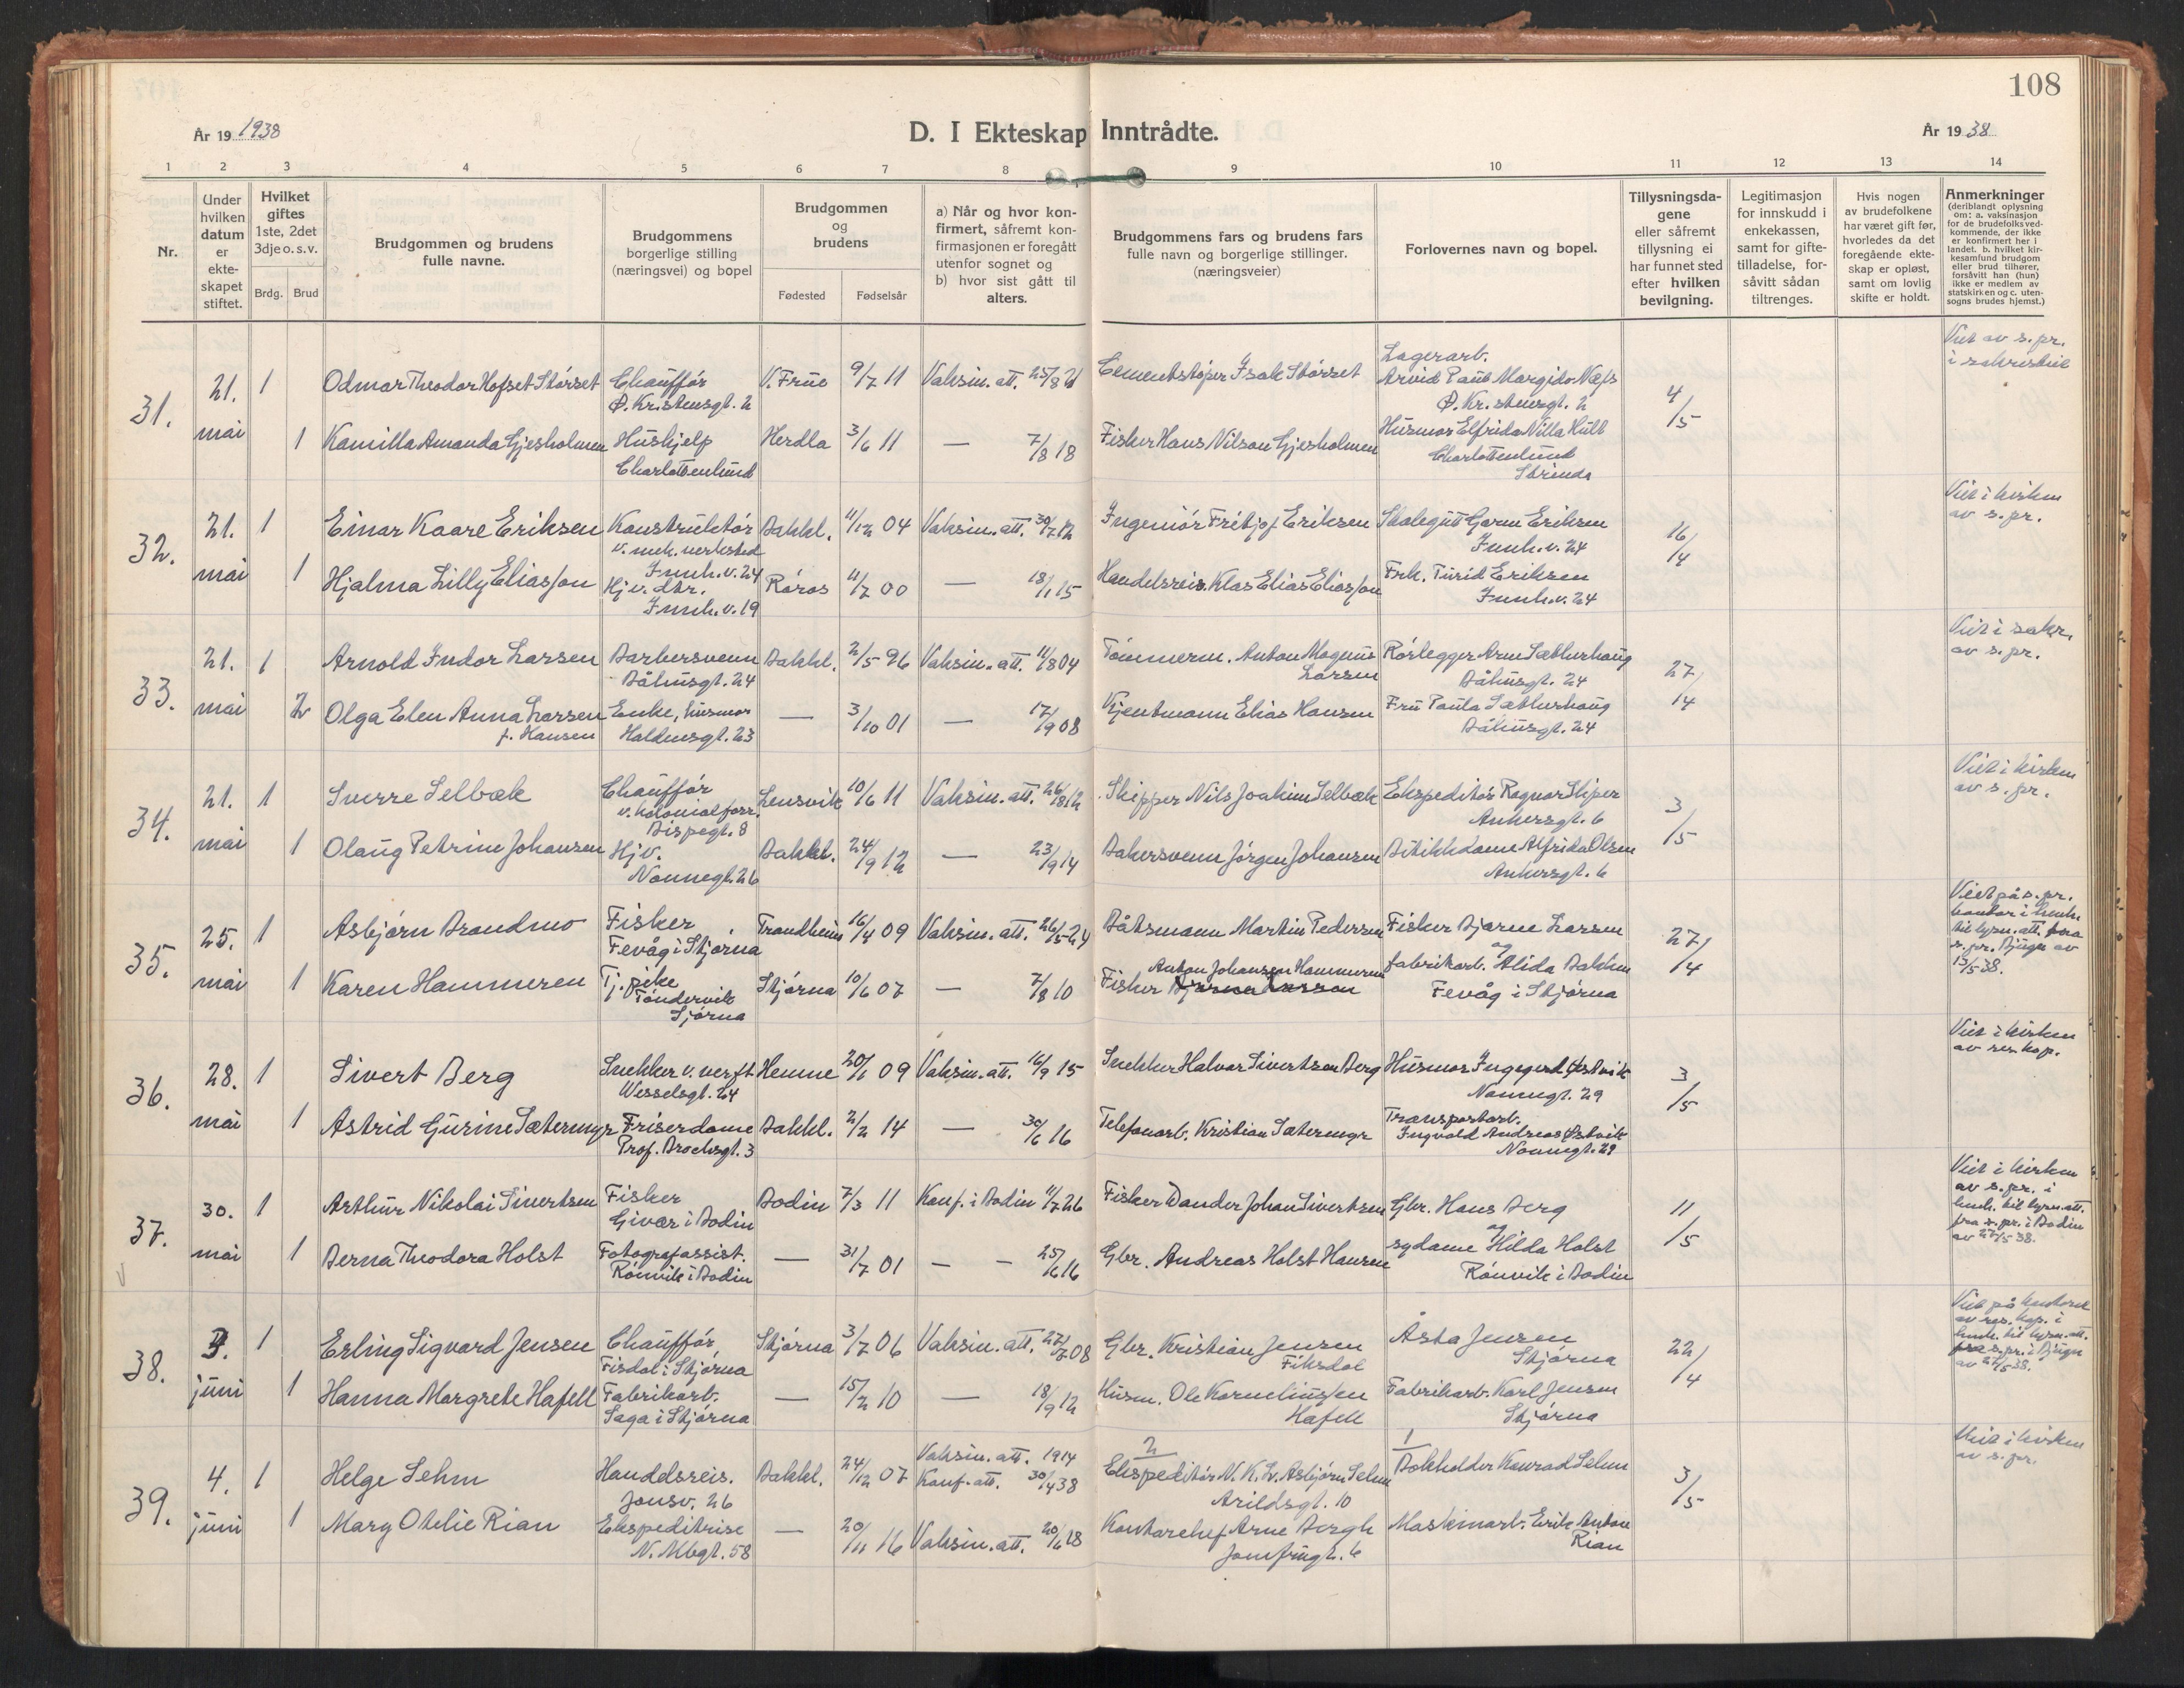 108
År 19 1938
D. I Ekteskap Inntrådte.
År 19 38
1 2 3 4 5 6 7 8 9 10 11 12 13 14
Nr.
Under hvilken datum er ekte-skapet stiftet.
Hvilket giftes 1ste, 2det 3dje o. s. v.
Brdg. Brud
Brudgommen og brudens fulle navne.
Brudgommens borgerlige stilling (næringsvei) og bopel
Brudgommen og brudens
Fødested Fødselsår
a) Når og hvor kon-firmert, såfremt kon-firmasjonen er foregått utenfor sognet og
b) hvor sist gått til alters.
Brudgommens fars og brudens fars fulle navn og borgerlige stillinger. (næringsveier)
Forlovernes navn og bopel.
Tillysningsda-gene eller såfremt tillysning ei har funnet sted efter hvilken bevilgning.
Legitimasjon for innskudd i enkekassen, samt for gifte-tilladelse, for-såvitt sådan tiltrenges.
Hvis nogen av brudefolkene har været gift før, hvorledes da det foregående ekte-skap er opløst, samt om lovlig skifte er holdt.
Anmerkninger (deriblandt oplysning om: a. vaksinasjon for de brudefolks ved-kommende, der ikke er konfirmert her i landet. b. hvilket kir-kesamfund brudgom eller brud tilhører, forsåvitt han (hun) ikke er medlem av statskirken og c. uten-sogns brudes hjemst.)
31.
21. mai
1 Odmar Theodor Hofset Størset
Chauffør
Ø. Kristensgt. 2
V. Frue 9/7 11 Vaksin. att. 25/8 21
Cementstøper Isak Størset
Lagerarb.
Arvid Paul Margido Næss
Ø. Kristensgt. 2
4/5
Viet av s.pr.
i sakristiet
1 Kamilla Amanda Gjesholmen
Hushjelp
Charlottenlund
Herdla 3/6 11 — 7/8 18
Fisker Hans Nilson Gjesholmen
Husmor Elfrida Villa Hult
Charlottenlund
Strinda
32.
21. mai
1 Einar Kaare Eriksen
Konstruktør
v. mek. verksted
Innh. v. 24
Bakkl. 11/12 04 Vaksin. att. 30/7 12
Ingeniør Fritjof Eriksen
Skolegutt Gorm Eriksen
Innh. v. 24
16/4
Viet i kirken
av s.pr.
1 Hjalma Lilly Eliasson
Hjv. dtr.
Innh. v. 19
Røros 11/7 00 — 18/1 15
Handelsreis. Klas Elias Eliasson
Frk. Turid Eriksen
Innh. v. 24
33.
21. mai
1 Arnold Indor Larsen
Barbersvenn
Båhusgt. 24
Bakkl. 2/5 96 Vaksin. att. 11/8 04
Tømmerm. Anton Magnus
Larsen
Rørlegger Arne Sætherhaug
Båhusgt. 24
27/4
Viet i sakr.
av s.pr.
2 Olga Elen Anna Larsen
f. Hansen
Enke, husmor
Haldensgt. 23
— 3/10 01 — 17/9 08
Kjentmann Elias Hansen
Fru Paula Sætherhaug
Båhusgt. 24
34.
21. mai
1 Sverre Selbæk
Chauffør
v. kolonialforr.
Bispegt. 8
Lensvik 10/6 11 Vaksin. att. 26/8 12
Skipper Nils Joakim Selbæk
Ekspeditør Ragnar Skjer
Ankersgt. 6
3/5
Viet i kirken
av s.pr.
1 Olaug Petrine Johansen
Hjv.
Nonnegt. 26
Bakkl. 24/9 12 — 23/9 14
Bakersvenn Jørgen Johansen
Butikkdame Alfrida Olsen
Ankersgt. 6
35.
25. mai
1 Asbjørn Brandmo
Fisker
Fevåg i Stjørna
Trondheim 16/4 09 Vaksin. att. 26/5 24
Båtsmann Martin Pedersen
Fisker Bjarne Larsen
og
27/4
Viet på s.pr.
kontor i henh.
til lysn. att. fra
s.pr. Bjugn av
13/5 38.
1 Karen Hammeren
Tj. pike
Tøndervik
Stjørna
Stjørna 10/6 07 — 7/8 10
Anton Johansen Hammeren
Fisker Bjarne Larsen
fabrikarb. Alida Bakken
Fevåg i Stjørna
36.
28. mai
1 Sivert Berg
Snekker v. verft
Wesselsgt. 24
Hemne 20/1 09 Vaksin. att. 16/9 15
Snekker Halvor Sivertsen Berg
Husmor Ingegerd Østvik
Nonnegt. 29
3/5
Viet i kirken
av res. kap.
1 Astrid Gurine Sætermyr
Friserdame
Prof. Brochsgt. 3
Bakkl. 2/2 14 — 30/6 16
Telefonarb. Kristian Sætermyr
Transportarb.
Ingvald Andreas Østvik
Nonnegt. 29
37.
30. mai
1 Arthur Nikolai Sivertsen
Fisker
Givær i Bodin
Bodin 7/3 11 Konf. i Bodin 11/7 26
Fisker Wander Johan Sivertsen
Gbr. Hans Berg
og
11/5
Viet i kirken
av s.pr. i
henh. til lysn. att.
fra s.pr. i Bodin
av 27/5 38.
1 Berna Theodora Holst
Fotografassist.
Rønvik i Bodin
— 31/7 01 — — 25/6 16
Gbr. Andreas Holst Hansen
sydame Hilda Holst
Rønvik i Bodin
38.
3. juni
1 Erling Sigvard Jensen
Chauffør
Fisdal i Stjørna
Stjørna 3/7 06 Vaksin. att. 27/7 08
Gbr. Kristian Jensen
Fiksdal
Åsta Jensen
Stjørna
22/4
Viet på kontoret
av res. kap. i
henh. til lysn. att.
fra s.pr. i Bjugn
av 21/5 38.
1 Hanna Margrete Hafell
Fabrikarb.
Saga i Stjørna
— 15/2 10 — 18/9 12
Husm. Ole Korneliussen
Hafell
Fabrikarb. Karl Jensen
Stjørna
39.
4. juni
1 Helge Sehm
Handelsreis.
Jonsv. 26
Bakkl. 24/12 07
Vaksin. att. 1914
Konf. att. 30/4 38
2
Ekspeditør N. K. L. Asbjørn Sehm
Arildsgt. 10
1
Bokholder Konrad Sehm
3/5
Viet i kirken
av s.pr.
1 Mary Otelie Rian
Ekspeditrise
N. Mbgt. 58
— 20/11 16 Vaksin. att. 20/6 18
Kontorchef Arne Bergh
Jomfrugt. 6
Maskinarb. Erik Anton
Rian